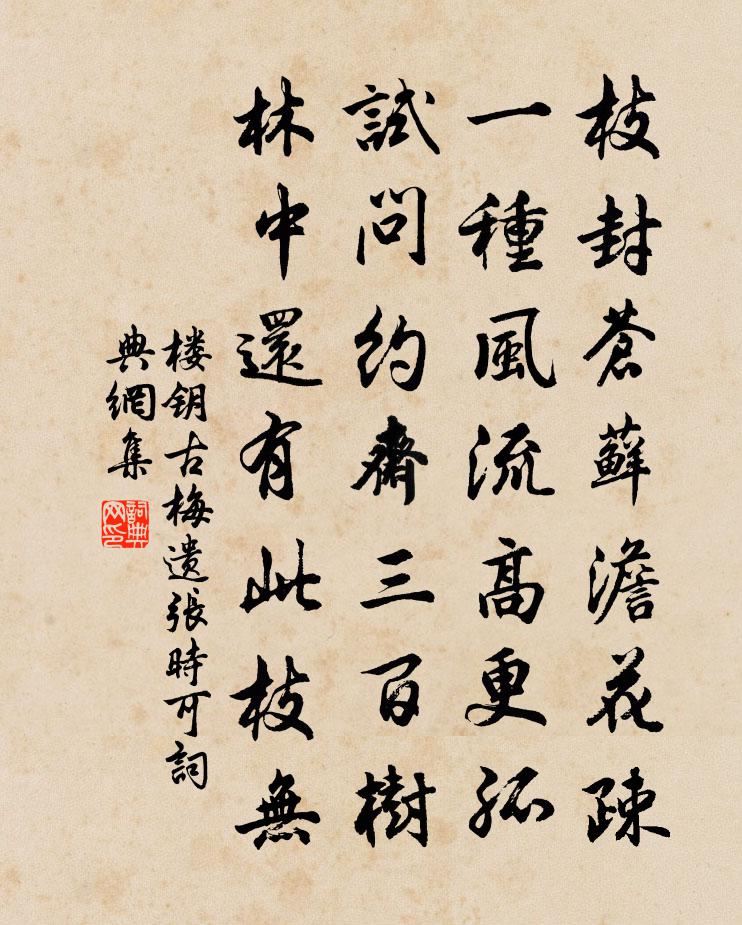 枝封蒼蘚澹花疎
一種風流高更孤
試問約齋三百樹
林中還有此枝無
楼钥古梅遗張時可詞
典網集
詞典网印